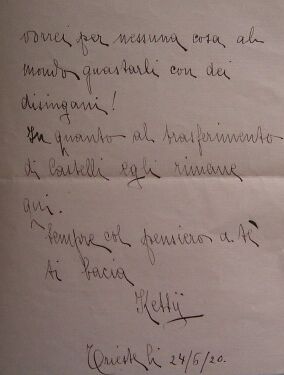 vorrei per nessuna cosa al
mondo guastarli con dei
disingani!
In quanto al trasferimento
di Castelli egli rimane
qui.
Sempre col pensiero a te
ti bacia
Ketty
Trieste li 24/6/20.